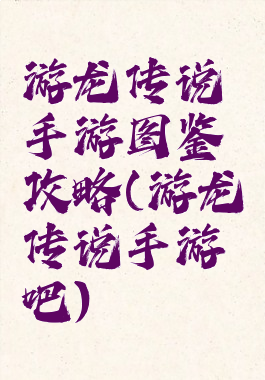 游龙传说
手游图鉴
攻略(游龙
传说手游
吧)